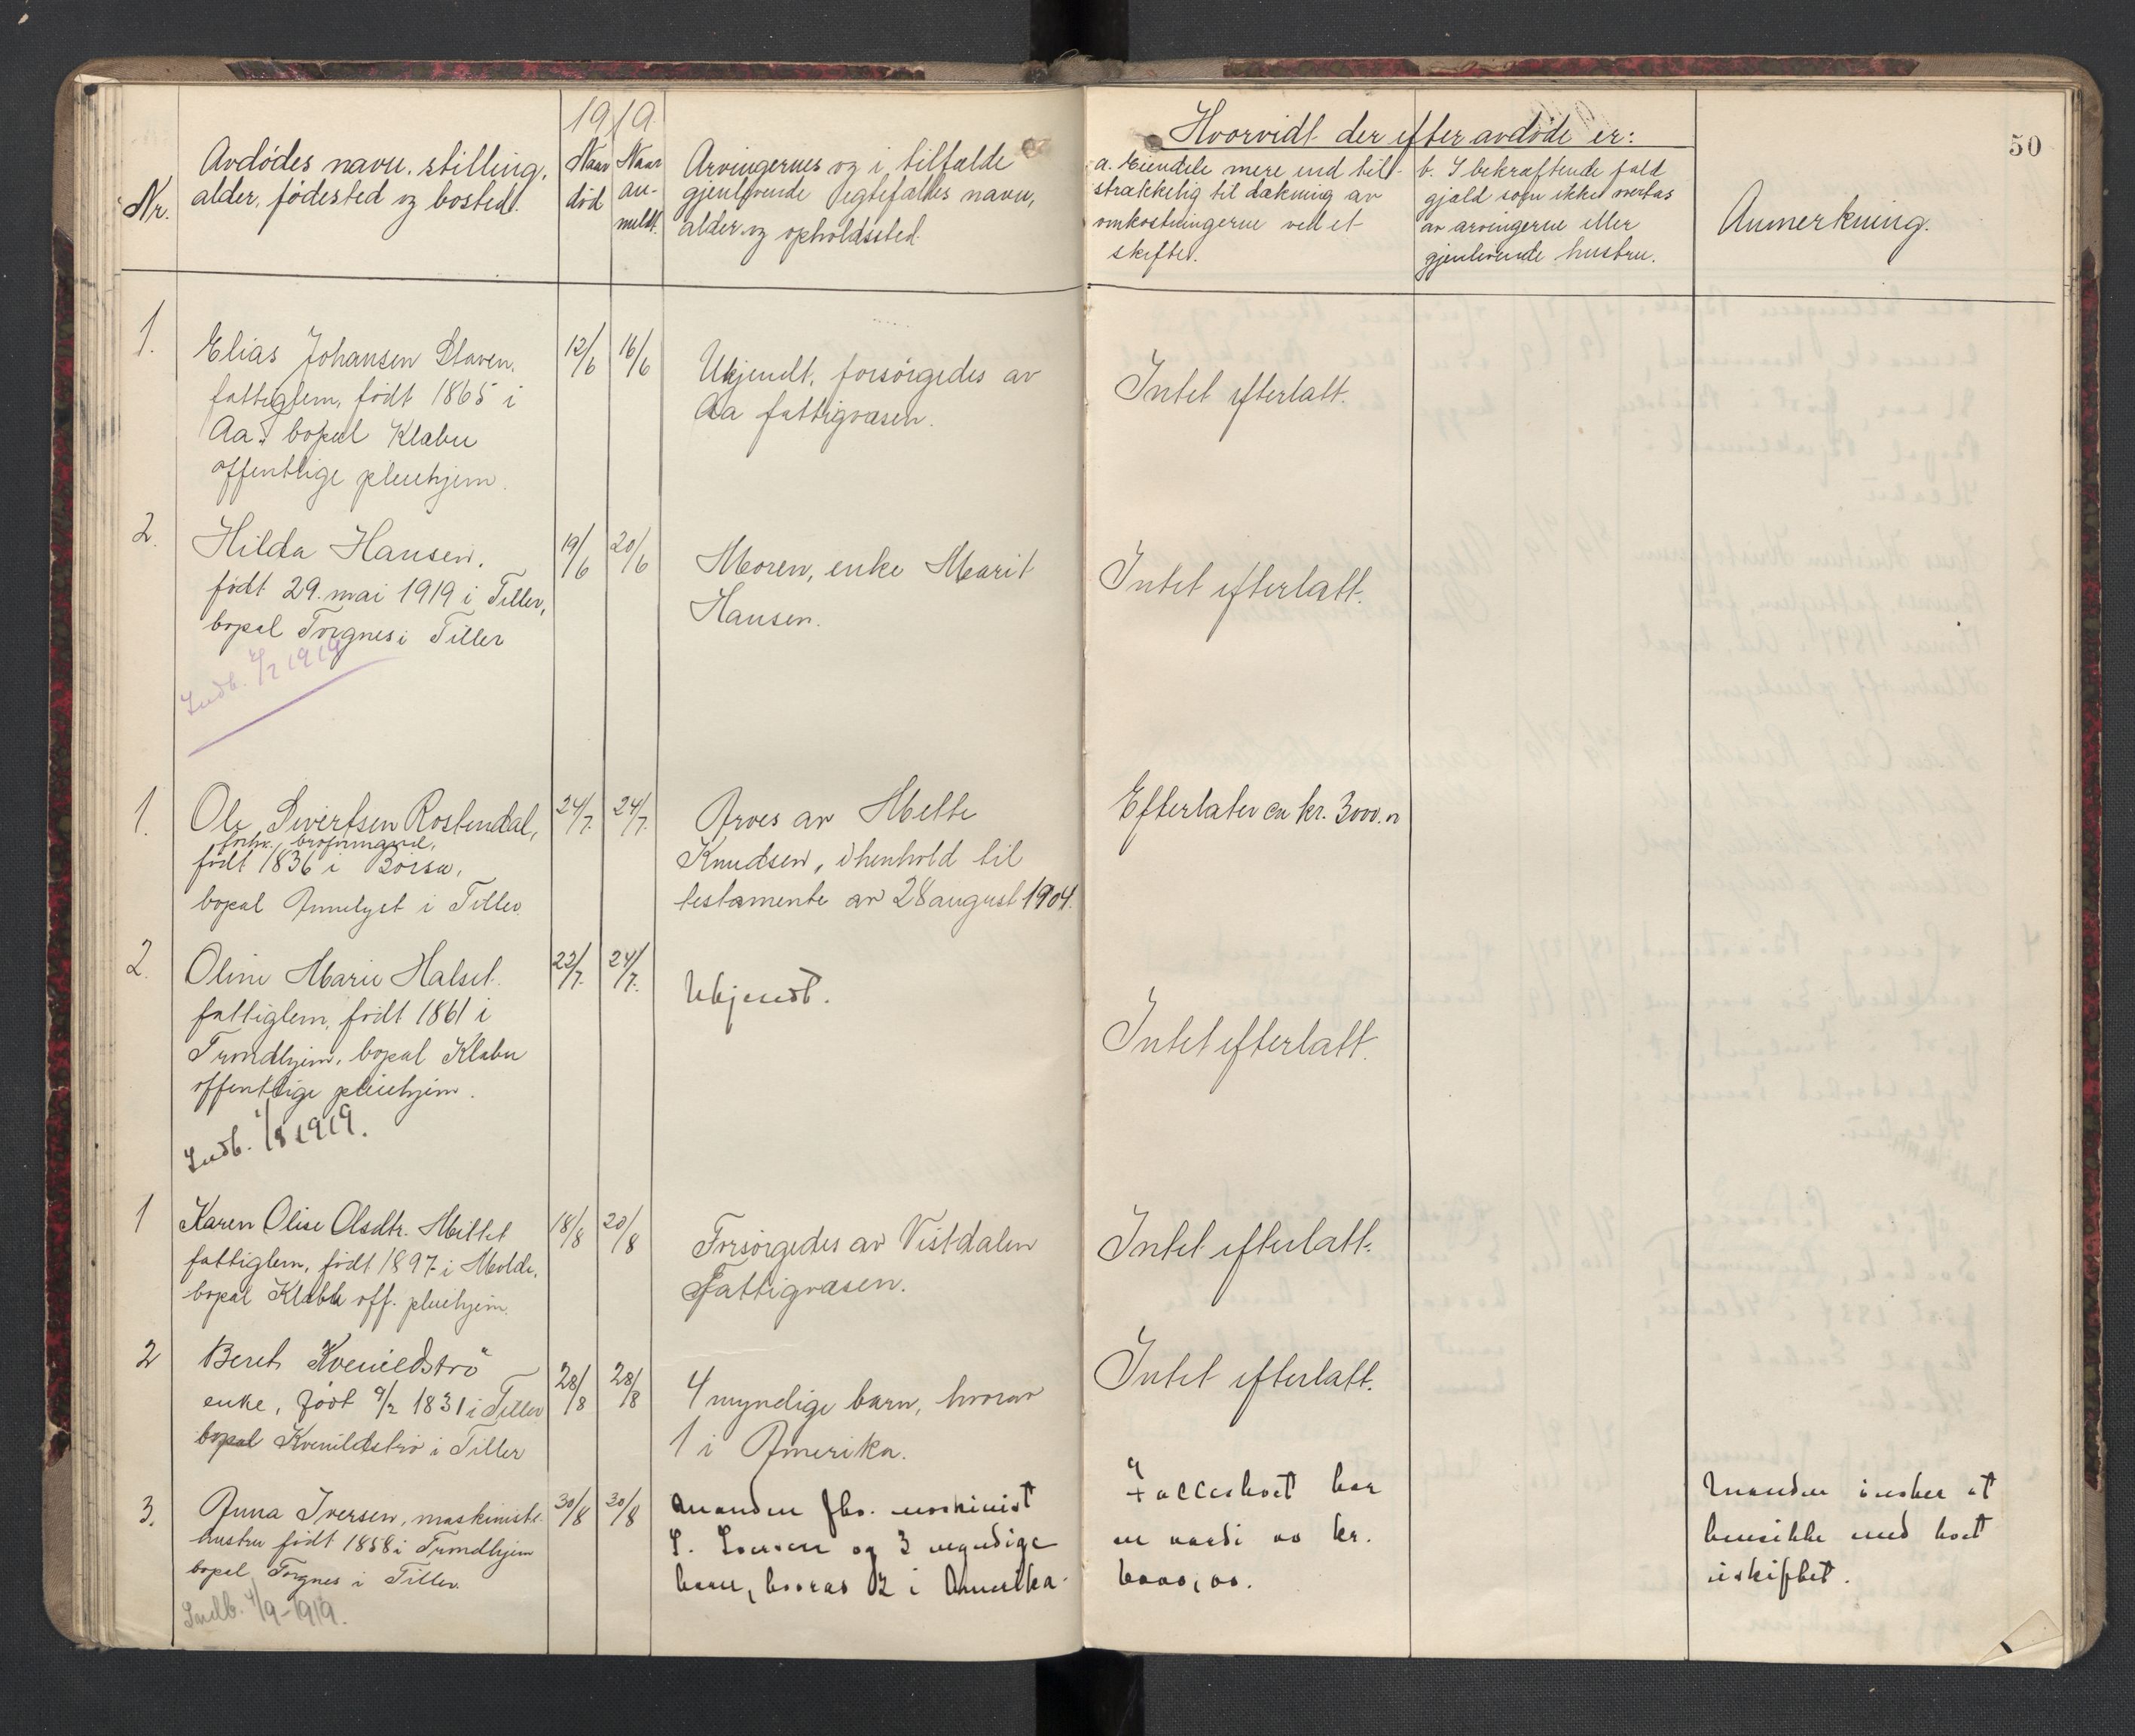 1919
50
Nr.
Avdødes navn, stilling,
alder, fødested og bosted.
Naar
død
Naar
an-
meldt.
Arvingernes og i tilfælde
gjenlevende Ægtefælles navn,
alder og opholdssted.
Hvorvidt der efter avdøde er:
a. Eiendele mere end til-
strækkelig til dækning av
omkostningerne ved et
skifte.
b. I bekræftende fald
gjæld som ikke overtas
av arvingerne eller
gjenlevende hustru.
Anmerkning.
1.
Elias Johansen Staven,
fattiglem, født 1865 i
Aa, bopæl Klæbu
offentlige pleiehjem.
12/6
16/6
Ukjendt, forsørgedes av
Aa fattigvæsen.
Intet efterlatt.
2.
Hilda Hansen,
født 29. mai 1919 i Tiller,
bopæl Torgnes i Tiller
19/6
20/6
Moren, enke Marit
Hansen.
Intet efterlatt.
Indb. 4/7 1919
1.
Ole Sivertsen Rostendal,
forhv. broformand,
født 1836 i Börsa,
bopæl Annelyst i Tiller
24/7.
24/7.
Arves av Mette
Knudsen, i henhold til
testamente av 28 august 1904.
Efterlater ca kr. 3000.
2.
Oline Marie Halset.
fattiglem, født 1861 i
Trondhjem, bopæl Klæbu
offentlige pleiehjem.
22/7.
24/7.
Ukjendt.
Intet efterlatt.
Indb. 1/8 1919.
1
Karen Olise Olsdtr. Mittet
fattiglem, født 1897 i Molde,
bopæl Klæbu off. pleiehjem.
18/8
20/8
Forsørgedes av Vistdalen
Fattigvæsen.
Intet efterlatt.
2
Beret Kvenildstrø
enke, født 9/2 1831 i Tiller
bopæl Kvenildstrø i Tiller
28/8
28/8
4 myndige barn, hvorav
1 i Amerika.
Intet efterlatt.
3.
Anna Iversen, maskinist-
hustru født 1858 i Trondhjem
bopæl Torgnes i Tiller.
30/8
30/8
Manden fhv. maskinist
I. Iversen og 3 myndige
barn, hvorav 2 i Amerika.
Fællesboet har
en værdi av kr.
6000,00.
Manden ønsker at
hensidde med boet
uskiftet.
Indb. 4/9-1919.